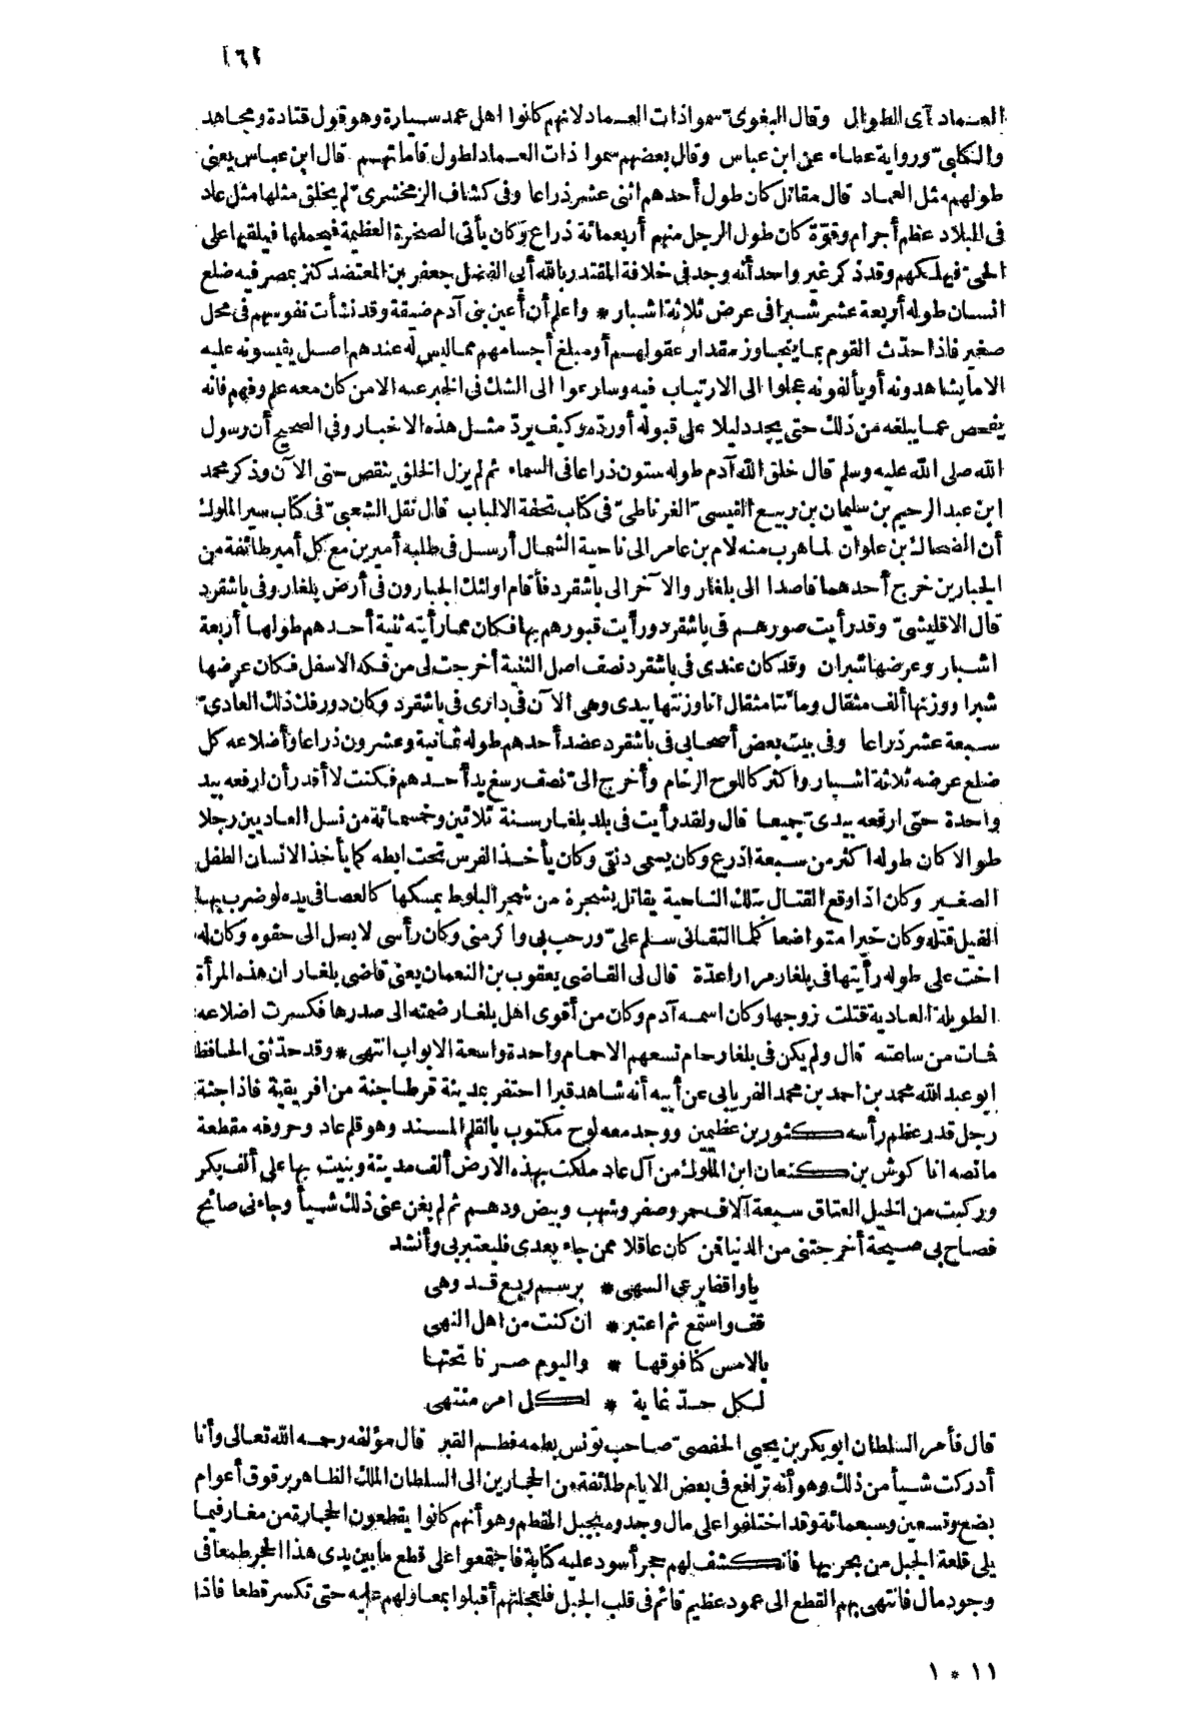 ١٦٢
العماد آى الطوال وقال البغوىّ سمواذات العماد لانهم كانوا اهل عمد سيارة وهو قول قتادة ومجاهد
والكلبىّ ورواية عطاء عن ابن عباس وقال بعضهم سموا ذات العماد لطول قاماتهم قال ابن عباس يعنى
طولهم مثل العماد قال مقاتل كان طول أحدهم اثنى عشر ذراعا وفى كشاف الزمخشرى لم يخلق مثلها مثل عاد
فى البلاد عظم أجرام وقوّة كان طول الرجل منهم أربعمائة ذراع وكان يأتى الصخرة العظيمة فيحملها فيلقيها على
الحىّ فيهلكهم وقد ذكر غير واحد أنه وجد فى خلافة المقتدر بالله أبى الفضل جعفر بن المعتضد كنز بمصر فيه ضلع
انسان طوله أربعة عشر شبرا فى عرض ثلاثة اشبار * واعلم أن أعين بنى آدم ضيقة وقد نشأت نفوسهم فى محل
صغير فاذا حدّث القوم بما يتجاوز مقدار عقولهم أو مبلغ أجسامهم مما ليس له عندهم اصل يقيسونه عليه
الا ما يشاهدونه أو يألفونه عجلوا الى الارتياب فيه وسارعوا الى الشك فى الخبر عنه الا من كان معه علم وفهم فانه
يفحص عما يبلغه من ذلك حتى يجد دليلا على قبوله أورده وكيف يردّ مثل هذه الاخبار وفى الصحيح أن رسول
الله صلى الله عليه وسلم قال خلق الله آدم طوله ستون ذراعا فى السماء ثم لم يزل الخلق ينقص حتى الآن وذكر محمد
ابن عبد الرحيم بن سليمان بن ربيع القيسىّ الغرناطىّ فى كتاب تحفة الالباب قال نقل الشعبىّ فى كتاب سير الملوك
أن الضحاك بن علوان لما هرب منه لام بن عامر الى ناحية الشمال أرسل فى طلبه أميرين مع كل أمير طائفة من
الجبارين خرج أحدهما قاصدا الى بلغار والآخر الى باشقرد فأقام اولئك الجبارون فى أرض بلغار وفى باشقرد
قال الاقليشىّ وقد رأيت صورهم فى باشقرد ورأيت قبورهم بها فكان مما رأيته ثنية أحدهم طولها أربعة
اشبار وعرضها شبران وقد كان عندى فى باشقرد نصف اصل الثنية أخرجت لى من فكه الاسفل فكان عرضها
شبرا ووزنها ألف مثقال ومائتا مثقال انا وزنتها بيدى وهى الآن فى دارى فى باشقرد وكان دور فك ذلك العادىّ
سبعة عشر ذراعا وفى بيت بعض أصحابى فى باشقرد عضد أحدهم طوله ثمانية وعشرون ذراعا وأضلاعه كل
ضلع عرضه ثلاثة اشبار واكثر كاللوح الرخام وأخرج الىّ نصف رسغ يد أحدهم فكنت لا أقدر أن ارفعه بيد
واحدة حتى ارفعه بيدىّ جميعا قال ولقد رأيت فى بلد بلغار سنة ثلاثين وخمسمائة من نسل العاديين رجلا
طوالا كان طوله اكثر من سبعة اذرع وكان يسمى دنقى وكان يأخذ الفرس تحت ابطه كما يأخذ الانسان الطفل
الصغير وكان اذا وقع القتال بتلك الناحية يقاتل بشجرة من شجر البلوط يمسكها كالعصا فى يده لو ضرب بها
الفيل قتله وكان خيرا متواضعا كلما التقانى سلم علىّ ورحب بى واكرمنى وكان رأسى لا يصل الى حقوه وكان له
اخت على طوله رأيتها فى بلغار مرارا عدّة قال لى القاضى يعقوب بن النعمان يعنى قاضى بلغار ان هذه المرأة
الطويلة العادية قتلت زوجها وكان اسمه آدم وكان من أقوى اهل بلغار ضمته الى صدرها فكسرت اضلاعه
فمات من ساعته قال ولم يكن فى بلغار حمام تسعهم الا حمام واحدة واسعة الابواب انتهى * وقد حدّثنى الحافظ
ابو عبد الله محمد بن احمد بن محمد الفريابى عن أبيه أنه شاهد قبرا احتفر بمدينة قرطاجنة من افريقية فاذا جثة
رجل قدر عظم رأسه كثورين عظيمين ووجد معه لوح مكتوب بالقلم المسند وهو قلم عاد وحروفه مقطعة
ما نصه انا كوش بن كنعان ابن الملوك من آل عاد ملكت بهذه الارض ألف مدينة وبنيت بها على ألف بكر
وركبت من الخيل العتاق سبعة آلاف حمر وصفر وشهب وبيض ودهم ثم لم يغن عنى ذلك شيأ وجاءنى صائح
فصاح بى صيحة أخرجتنى من الدنيا فمن كان عاقلا ممن جاء بعدى فليعتبر بى وأنشد
يا واقفا يرعى السهى * برسم ربع قد وهى
قف واستمع ثم اعتبر * ان كنت من اهل النهى
بالامس كنا فوقها * واليوم صرنا تحتها
لكل حدّ غاية * لكل امر منتهى
قال فأمر السلطان ابو بكر بن يحيى الحفصىّ صاحب تونس بطمه فطم القبر قال مؤلفه رحمه الله تعالى وأنا
أدركت شيأ من ذلك وهو أنه ترافع فى بعض الايام طائفة من الحجارين الى السلطان الملك الظاهر برقوق أعوام
بضع وتسعين وسبعمائة وقد اختلفوا على مال وجدوه بجبل المقطم وهو أنهم كانوا يقطعون الحجارة من مغار فيما
يلى قلعة الجبل من بحريها فانكشف لهم حجر أسود عليه كتابة فاجتمعوا على قطع ما بين يدى هذا الحجر طمعا فى
وجود مال فانتهى بهم القطع الى عمود عظيم قائم فى قلب الجبل فلعجلتهم أقبلوا بمعاولهم عليه حتى تكسر قطعا فاذا
١ * ١١